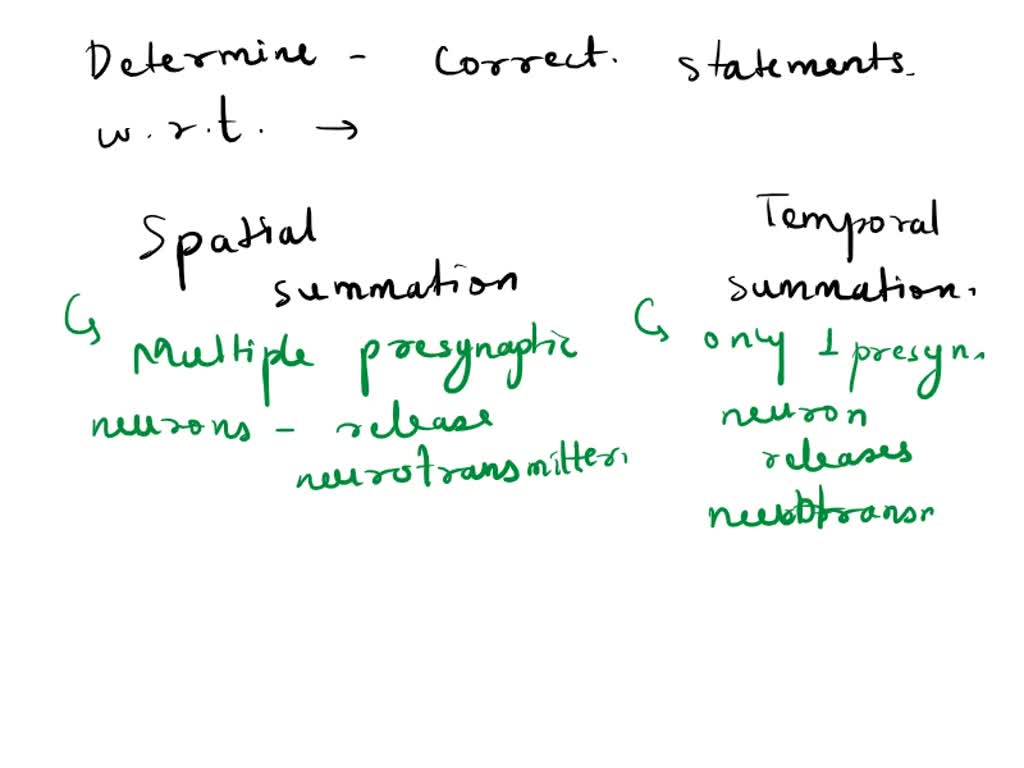 Determine - Correct. statements.
w.r.t. →
Spatial summation
Multiple presynaptic
neurons - release
neurotransmitter.
Temporal
summation.
only 1 presyn.
neuron
releases